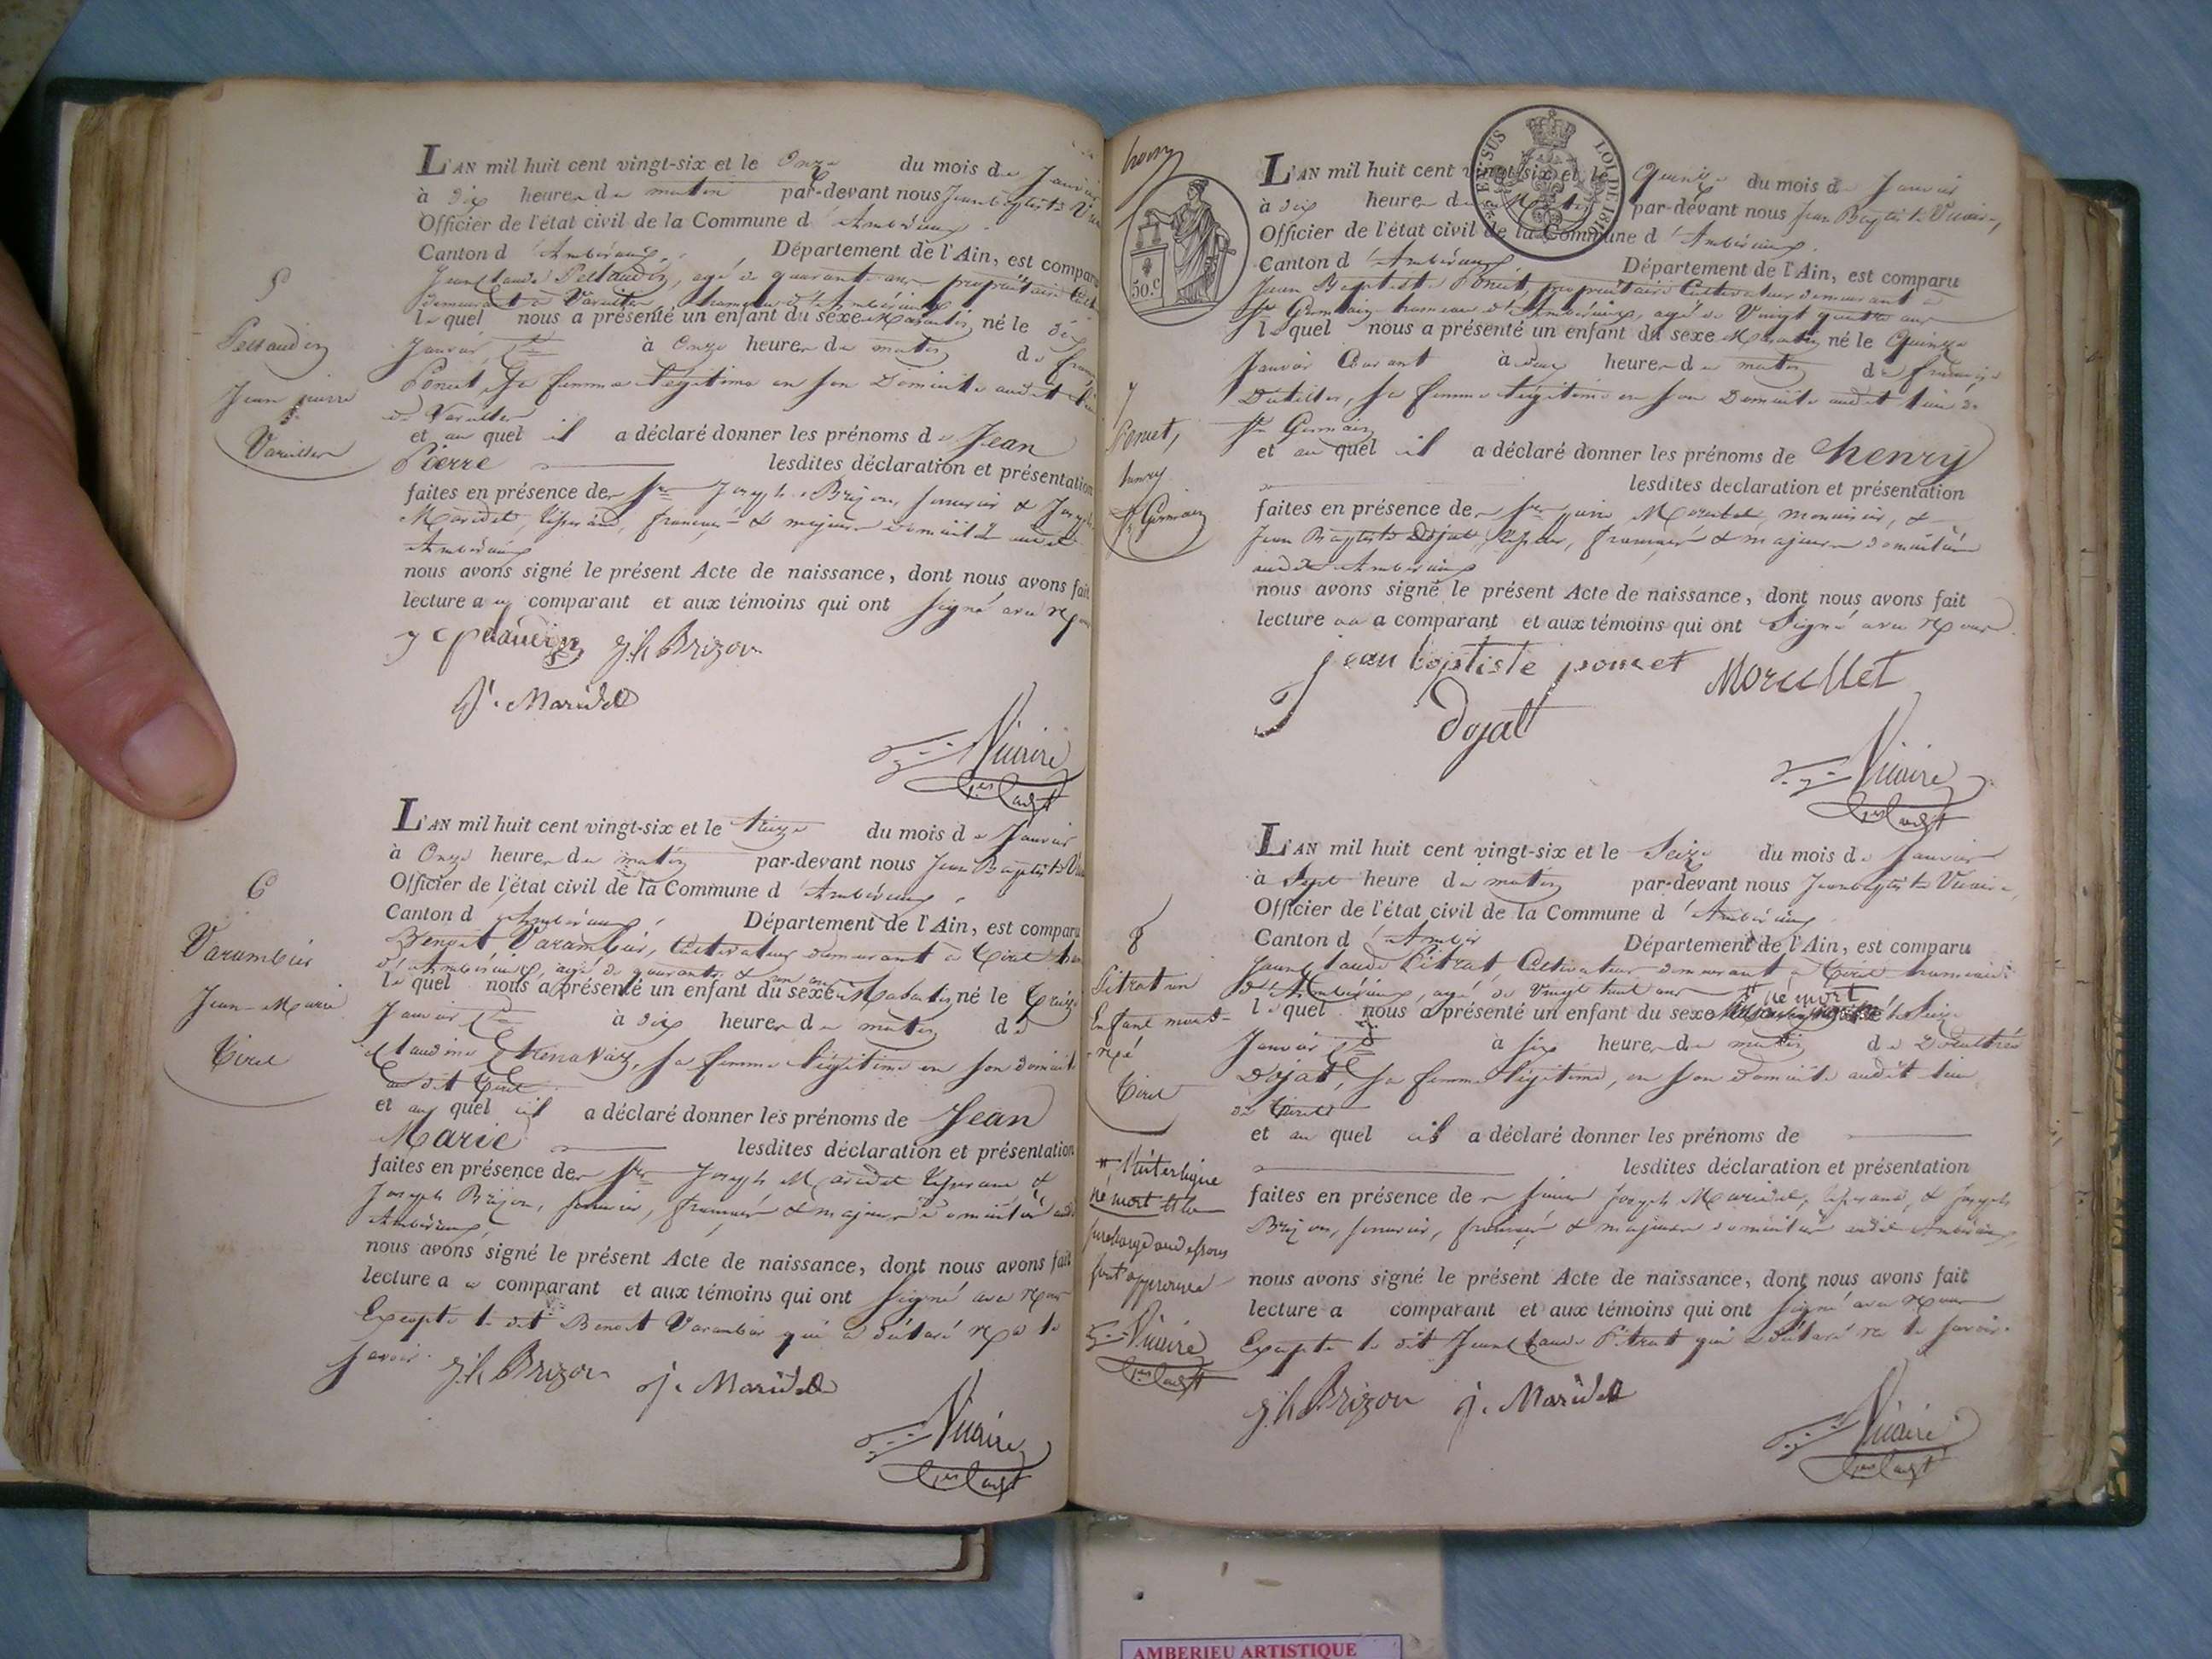 L'AN mil huit cent vingt-six et le Onze du mois de Janvier
à dix heures du matin par-devant nous Jean Baptiste
Officier de l'état civil de la Commune d'Ambérieux
Canton d'Ambérieux, Département de l'Ain, est comparu
Jean Claude agé de quarante ans propriétaire
demeurant à Vareilles, hameau d'Ambérieux
lequel nous a présenté un enfant du sexe Masculin né le dix
Janvier à Onze heures du matin de
Poncet, sa femme légitime en son Domicile audit
de Vareilles
et au quel il a déclaré donner les prénoms de Jean
Pierre lesdites déclaration et présentation
faites en présence des Srs Joseph Brizon, & Joseph
Maridet, français & majeurs domiciliés audit
Ambérieux
nous avons signé le présent Acte de naissance, dont nous avons fait
lecture au comparant et aux témoins qui ont signé avec nous
jh Brizon
j. Maridet
Vicaire
5
Jean pierre
Vareilles
L'AN mil huit cent vingt-six et le treize du mois de Janvier
à Onze heures du matin par-devant nous Jean Baptiste
Officier de l'état civil de la Commune d'Ambérieux,
Canton d'Ambérieux, Département de l'Ain, est comparu
Benoit Varambier, Cultivateur demeurant à Tiret
d'Ambérieux, agé de quarante & un ans
lequel nous a présenté un enfant du sexe Masculin né le treize
Janvier à dix heures du matin de
Claudine sa femme légitime en son domicile
au dit Tiret
et au quel il a déclaré donner les prénoms de Jean
Marie lesdites déclaration et présentation
faites en présence des Srs Joseph Maridet &
Joseph Brizon, français & majeurs domiciliés audit
Ambérieux
nous avons signé le présent Acte de naissance, dont nous avons fait
lecture au comparant et aux témoins qui ont signé avec nous
Excepté le dit Benoit Varambier qui a déclaré ne le
savoir.
jh Brizon j. Maridet
Vicaire
6
Varambier
Jean-Marie
Tiret
50.c
LOI DE 18
L'AN mil huit cent vingt-six et le Quinze du mois de Janvier
à dix heures du Matin par-devant nous Jean Baptiste Vicaire,
Officier de l'état civil de la Commune d'Ambérieux
Canton d'Ambérieux Département de l'Ain, est comparu
Jean Baptiste Poncet, propriétaire Cultivateur demeurant à
St Germain hameau d'Ambérieux, agé de Vingt quatre ans
lequel nous a présenté un enfant du sexe Masculin né le Quinze
Janvier Courant à deux heures du matin de
sa femme légitime en son Domicile audit lieu de
St Germain
et au quel il a déclaré donner les prénoms de henry
lesdites declaration et présentation
faites en présence des Srs Morellet, &
Jean Baptiste Dojat, français & majeurs domiciliés
audit Ambérieux
nous avons signé le présent Acte de naissance, dont nous avons fait
lecture au comparant et aux témoins qui ont Signé avec nous
jean baptiste poncet Morellet
dojat
Vicaire
7
Poncet,
henry
St Germain
L'AN mil huit cent vingt-six et le Seize du mois de Janvier
à Sept heure du matin par-devant nous Jean baptiste Vicaire,
Officier de l'état civil de la Commune d'Ambérieux
Canton d'Ambér Département de l'Ain, est comparu
Jean Claude Pitrat, Cultivateur demeurant à Tiret hameau
d'Ambérieux, agé de Vingt huit ans né mort
lequel nous a présenté un enfant du sexe le Seize
Janvier à six heures du matin de
Dojat, sa femme légitime, en son domicile audit lieu
de Tiret
et au quel il a déclaré donner les prénoms de
lesdites déclaration et présentation
faites en présence de Joseph Maridet, & Joseph
Brizon, français & majeurs domiciliés audit Ambérieux,
nous avons signé le présent Acte de naissance, dont nous avons fait
lecture a comparant et aux témoins qui ont signé avec nous
Excepté le dit Jean Claude Pitrat qui a déclaré ne le savoir.
jh Brizon j. Maridet
Vicaire
8
Pitrat un
Enfant mort-
né
Tiret
l'interligne
né mort et la
surcharge au dessous
sont approuvée
Vicaire
AMBERIEU ARTISTIQUE